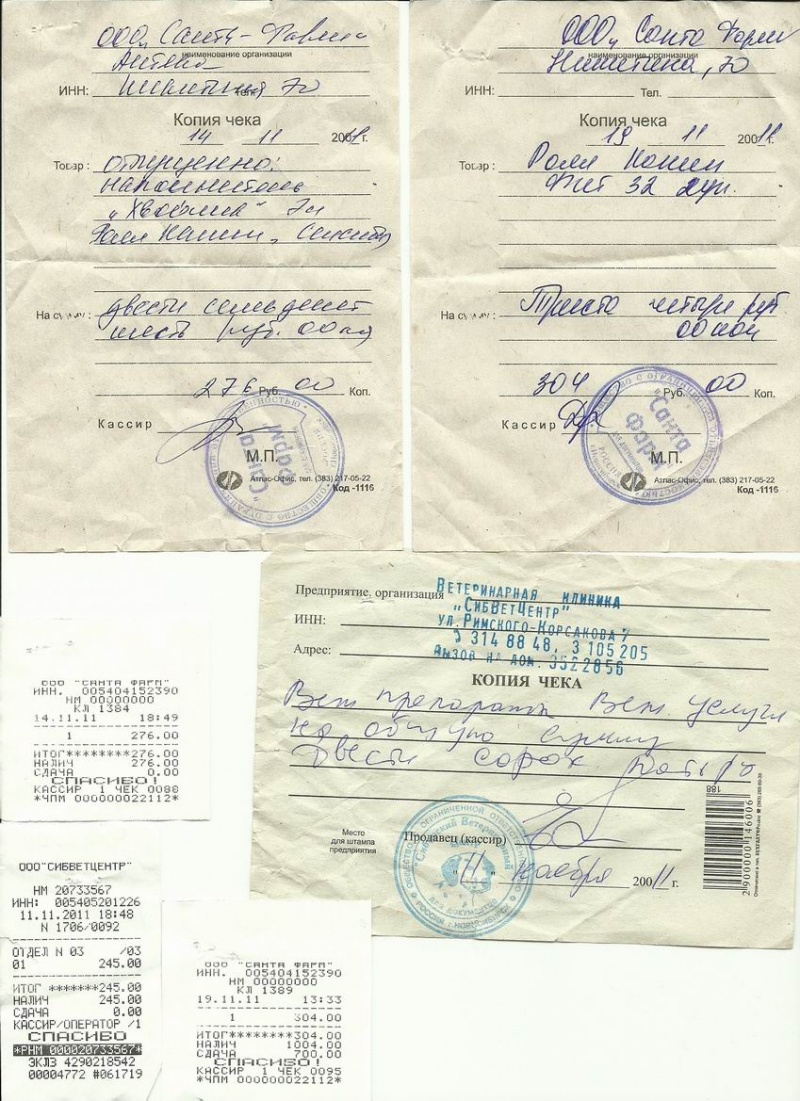 ООО "Санта-Фарм"
наименование организации
Аптека
ИНН: Никитина 70
Копия чека
14 11 2011 г.
Товар: отпущенно:
наполнитель
"Хвойка"
Роял Канин,
На сумму: двести семьдесят
шесть руб. 00 коп
276 Руб. 00 Коп.
Кассир
М.П.
"Санта Фарм"
Атлас-Офис, тел. (383) 217-05-22
Код -1116
ООО "Санта Фарм"
наименование организации
Никитина, 70
ИНН: Тел.
Копия чека
19 11 2011 г.
Товар: Роял Канин
Фит 32
На сумму: Триста четыре руб
00 коп
304 Руб. 00 Коп.
Кассир
"Санта Фарм"
М.П.
Атлас-Офис, тел. (383) 217-05-22
Код -1116
Предприятие, организация Ветеринарная клиника
"СибВетЦентр"
ИНН: ул. Римского-Корсакова 7
3 314 88 48, 3 105 205
Адрес: Вызов на дом. 3522856
КОПИЯ ЧЕКА
Вет препараты Вет. услуги
на общую сумму
Двести сорок пять р
Место
для штампа
предприятия
Продавец (кассир)
"11" ноября 2011 г.
188
2 900000 146006
ООО "САНТА ФАРМ"
ИНН. 005404152390
НМ 00000000
КЛ 1384
14.11.11 18:49
1 276.00
ИТОГ********276.00
НАЛИЧ 276.00
СДАЧА 0.00
СПАСИБО!
КАССИР 1 ЧЕК 0088
*ЧПМ 000000022112*
ООО"СИБВЕТЦЕНТР"
НМ 20733567
ИНН: 005405201226
11.11.2011 18:48
N 1706/0092
ОТДЕЛ N 03 /03
01 245.00
ИТОГ *******245.00
НАЛИЧ 245.00
СДАЧА 0.00
КАССИР/ОПЕРАТОР /1
СПАСИБО
*РНМ 000020733567*
ЭКЛЗ 4290218542
00004772 #061719
ООО "САНТА ФАРМ"
ИНН. 005404152390
НМ 00000000
КЛ 1389
19.11.11 13:33
1 304.00
ИТОГ********304.00
НАЛИЧ 1004.00
СДАЧА 700.00
СПАСИБО!
КАССИР 1 ЧЕК 0095
*ЧПМ 000000022112*